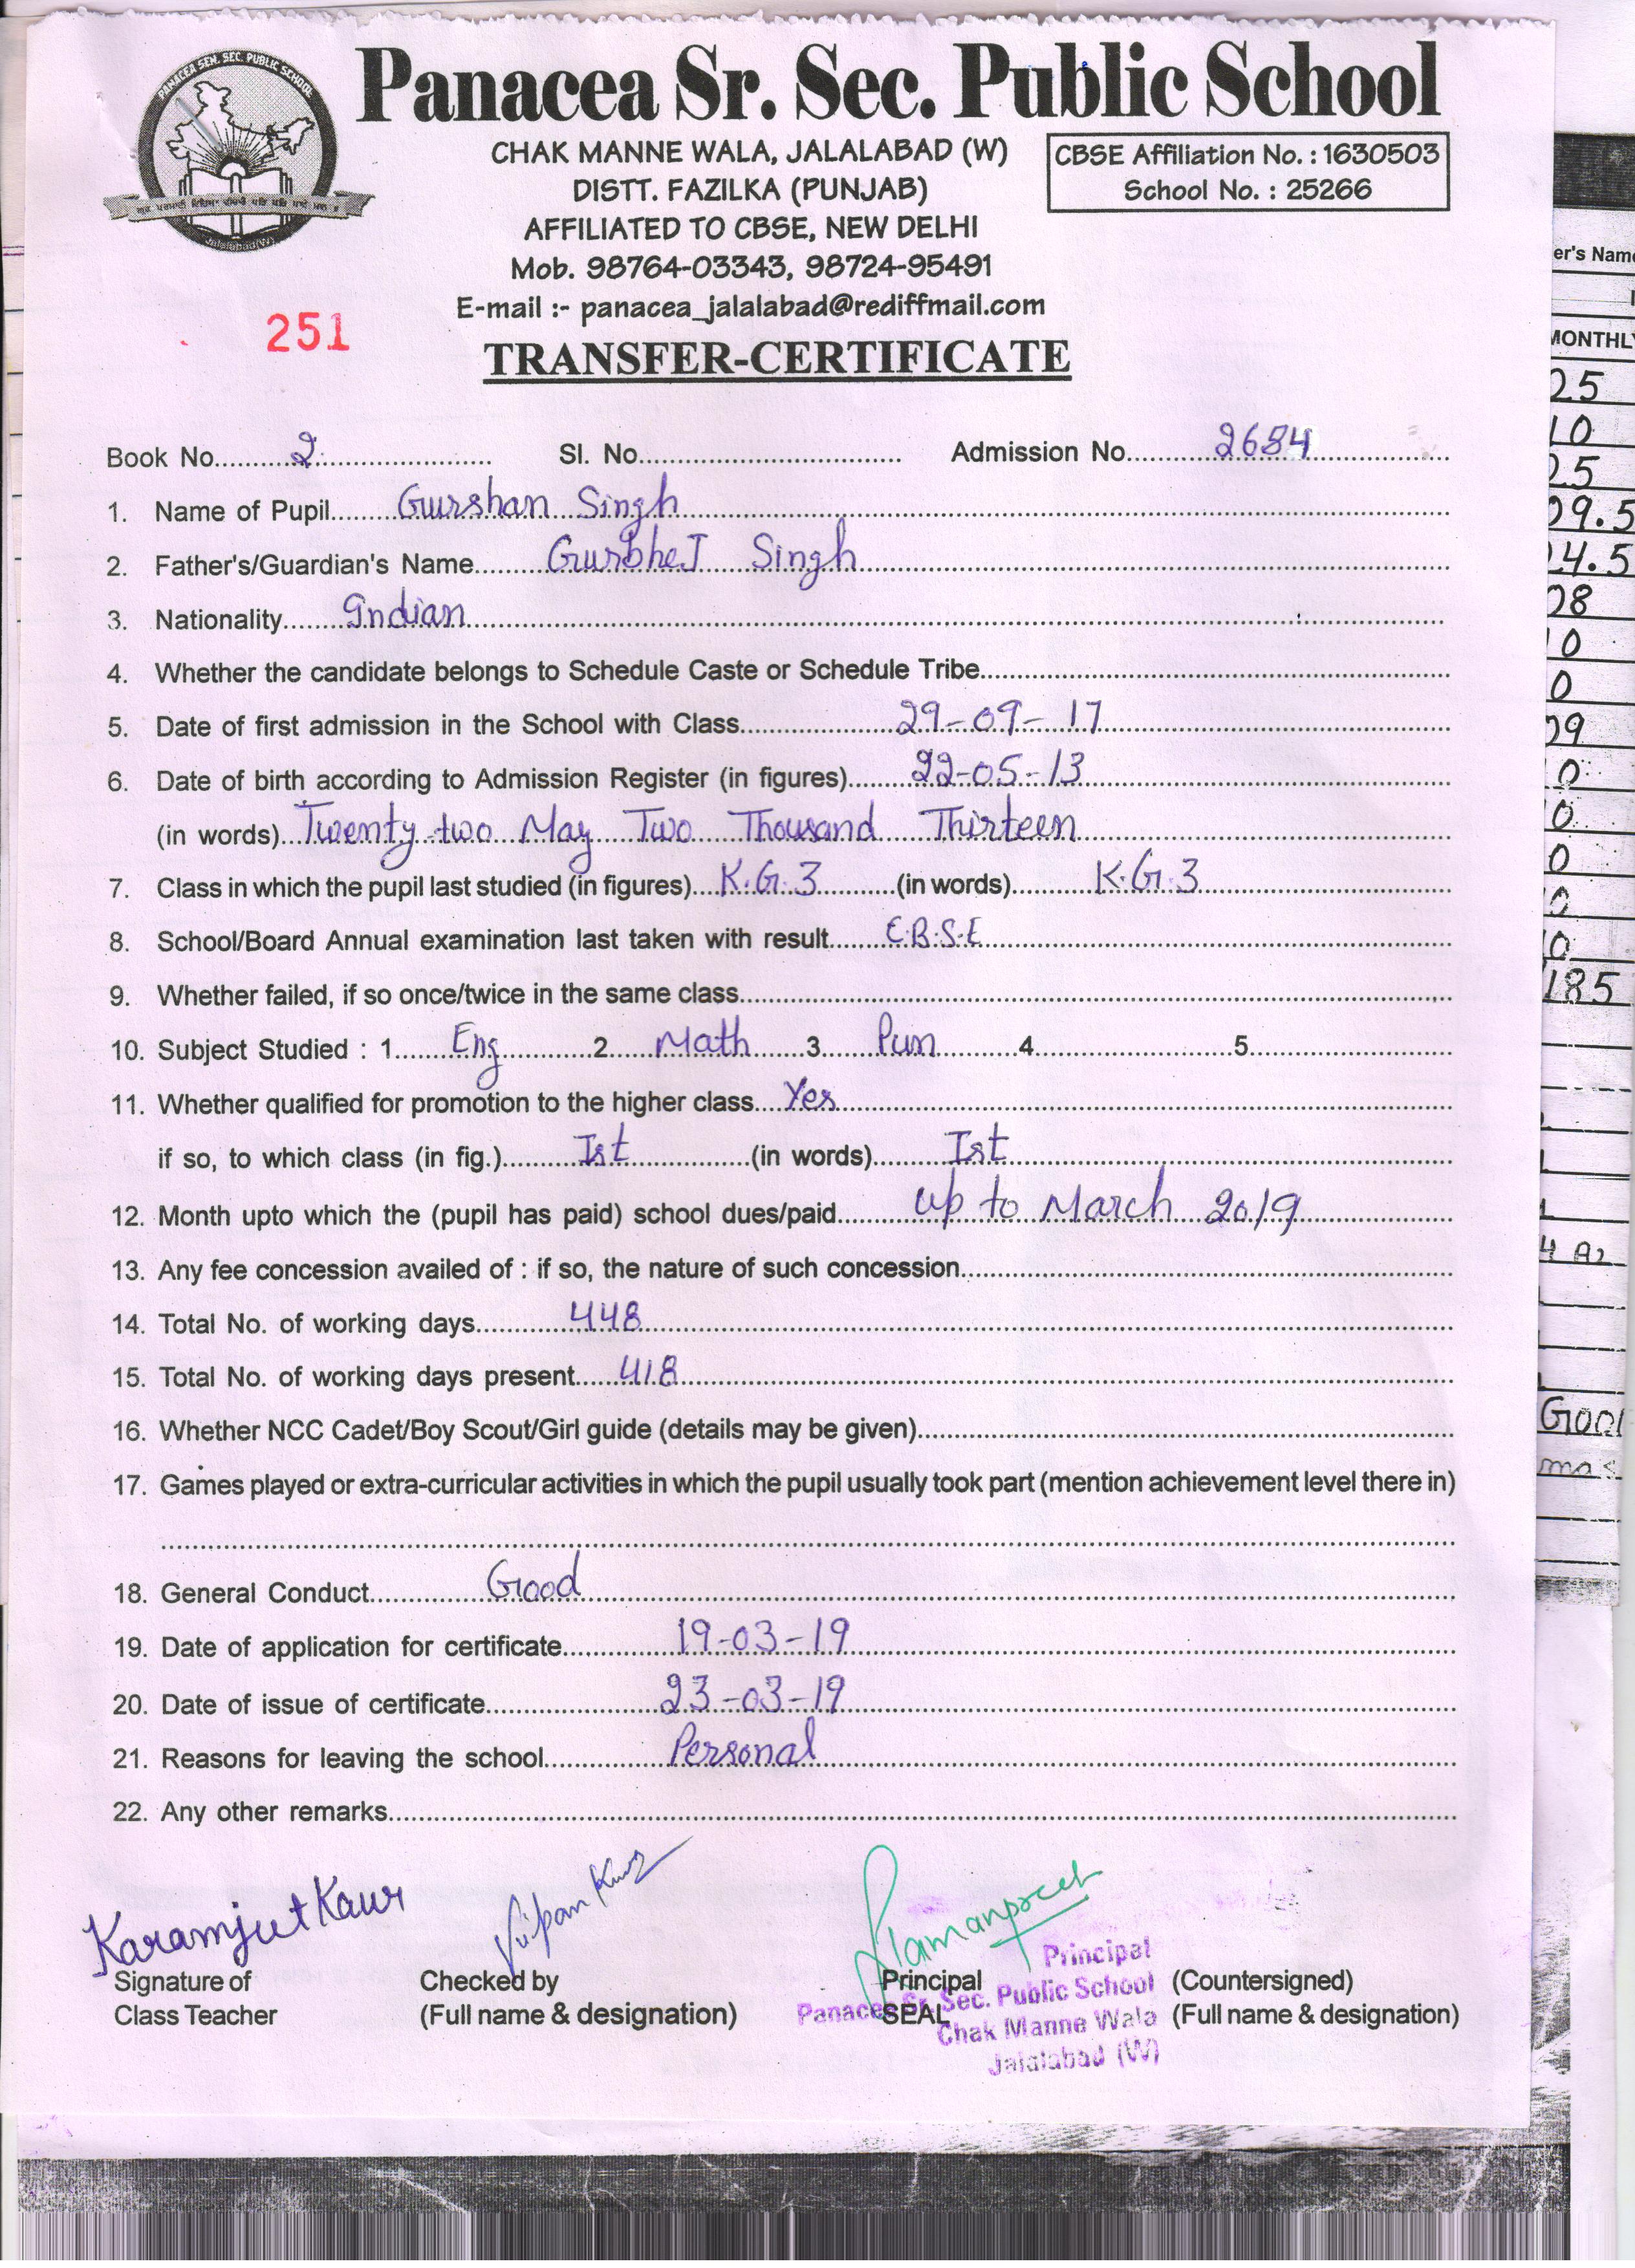 PANACEA SEN. SEC. PUBLIC SCHOOL
Jalalabad(W)
Panacea Sr. Sec. Public School
CHAK MANNE WALA, JALALABAD (W)
DISTT. FAZILKA (PUNJAB)
AFFILIATED TO CBSE, NEW DELHI
Mob. 98764-03343, 98724-95491
E-mail :- panacea_jalalabad@rediffmail.com
CBSE Affiliation No. : 1630503
School No. : 25266
251
TRANSFER-CERTIFICATE
Book No. 2 Sl. No. Admission No. 2684
1. Name of Pupil Gurshan Singh
2. Father's/Guardian's Name GurbheJ Singh
3. Nationality Indian
4. Whether the candidate belongs to Schedule Caste or Schedule Tribe
5. Date of first admission in the School with Class 29-09-17
6. Date of birth according to Admission Register (in figures) 22-05-13
(in words) Twenty-two May Two Thousand Thirteen
7. Class in which the pupil last studied (in figures) K.G.3 (in words) K.G.3
8. School/Board Annual examination last taken with result C.B.S.E
9. Whether failed, if so once/twice in the same class
10. Subject Studied : 1 Eng 2 Math 3 Pun 4 5
11. Whether qualified for promotion to the higher class Yes
if so, to which class (in fig.) Ist (in words) Ist
12. Month upto which the (pupil has paid) school dues/paid up to March 2019
13. Any fee concession availed of : if so, the nature of such concession
14. Total No. of working days 448
15. Total No. of working days present 418
16. Whether NCC Cadet/Boy Scout/Girl guide (details may be given)
17. Games played or extra-curricular activities in which the pupil usually took part (mention achievement level there in)
18. General Conduct Good
19. Date of application for certificate 19-03-19
20. Date of issue of certificate 23-03-19
21. Reasons for leaving the school Personal
22. Any other remarks
Karamjeet Kaur
Signature of
Class Teacher
Checked by
(Full name & designation)
Principal
SEAL
Principal
Panacea Sr. Sec. Public School
Chak Manne Wala
Jalalabad (W)
(Countersigned)
(Full name & designation)
er's Name
MONTHLY
25
10
29.5
185
4 A2